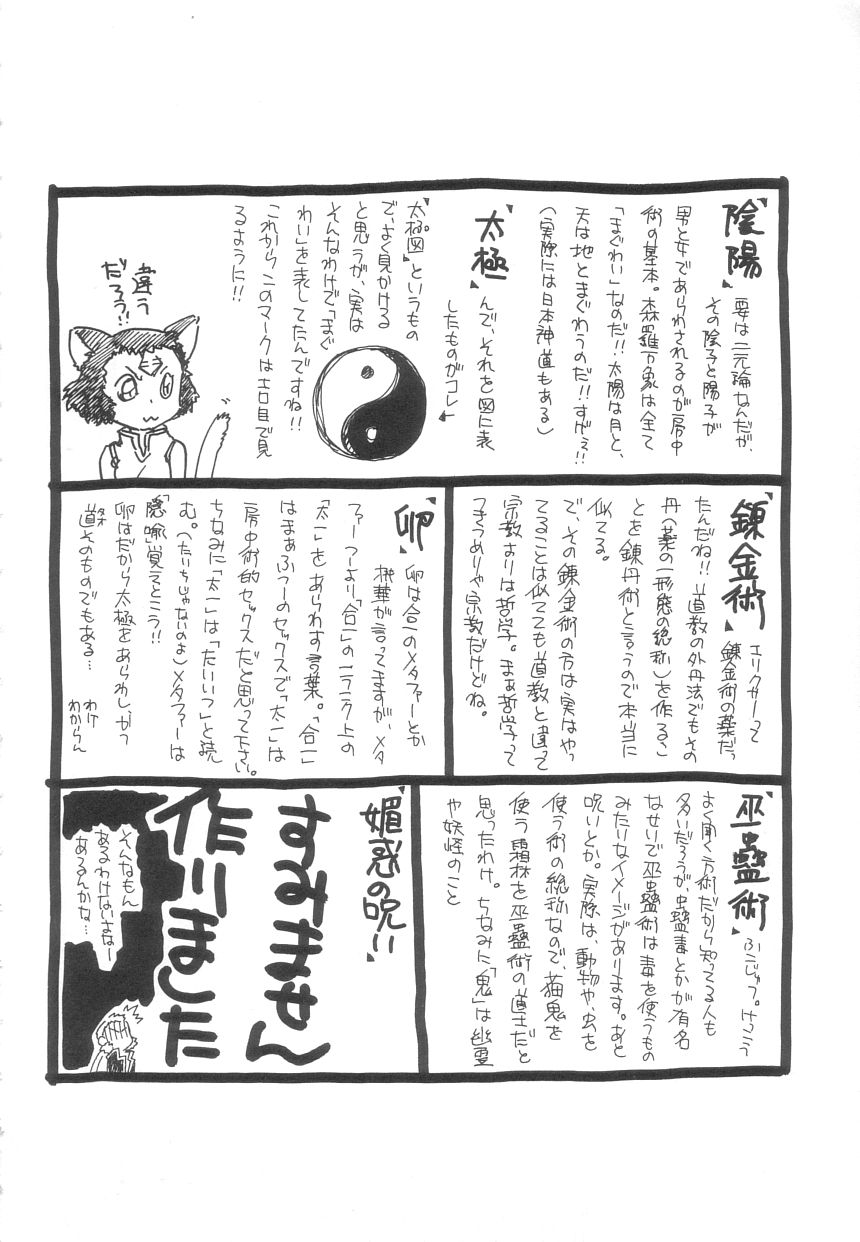 『陰陽』
要は二元論なんだが、
その陰子と陽子が
男と女であらわされるのが房中
術の基本。森羅万象は全て
「まぐわい」なのだ!!太陽は月と、
天は地とまぐわうのだ!!すげぇ!!
（実際には日本神道もある）
『太極』
んで、それを図に表
したものがコレ
『太極図』というもの
で、よく見かける
と思うが、実は
そんなわけで「まぐ
わい」を表してたんですね!!
これからこのマークはエロ目で見
るように!!
違う
だろう!!
『錬金術』
エリクサーって
錬金術の薬だっ
たんだね!!道教の外丹法でもその
丹（薬の一形態の総称）を作るこ
とを錬丹術と言うので本当に
似てる。
で、その錬金術の方は実はやっ
てることは似てても道教と違って
宗教よりは哲学。まぁ哲学って
つきつめりゃ宗教だけどね。
『卵』
卵は合一のメタファーとか
桃華が言ってますが、メタ
ファーつーより「合一」の一ランク上の
「太一」をあらわす言葉。「合一」
はまぁふつーのセックスで「太一」は
房中術的セックスだと思って下さい。
ちなみに「太一」は「たいいつ」と読
む。（たいちじゃないのよ）メタファーは
「隠喩」覚えとこう!!
卵はだから太極をあらわしかつ
道そのものでもある…
タオ
わけ
わからん
『巫蠱術』
ふこじゅつ。けっこう
よく聞く方術だから知ってる人も
多いだろうが、虫蠱毒とかが有名
なせいで巫蠱術は毒を使うもの
みたいなイメージがあります。あと
呪いとか。実際は、動物や、虫を
使う術の総称なので、猫鬼を
使う霜林を巫蠱術の道士だと
思ったわけ。ちなみに「鬼」は幽霊
や妖怪のこと
『媚惑の呪い』
すみません
作りました
そんなもん
あるわけないよなー
あるんかな…